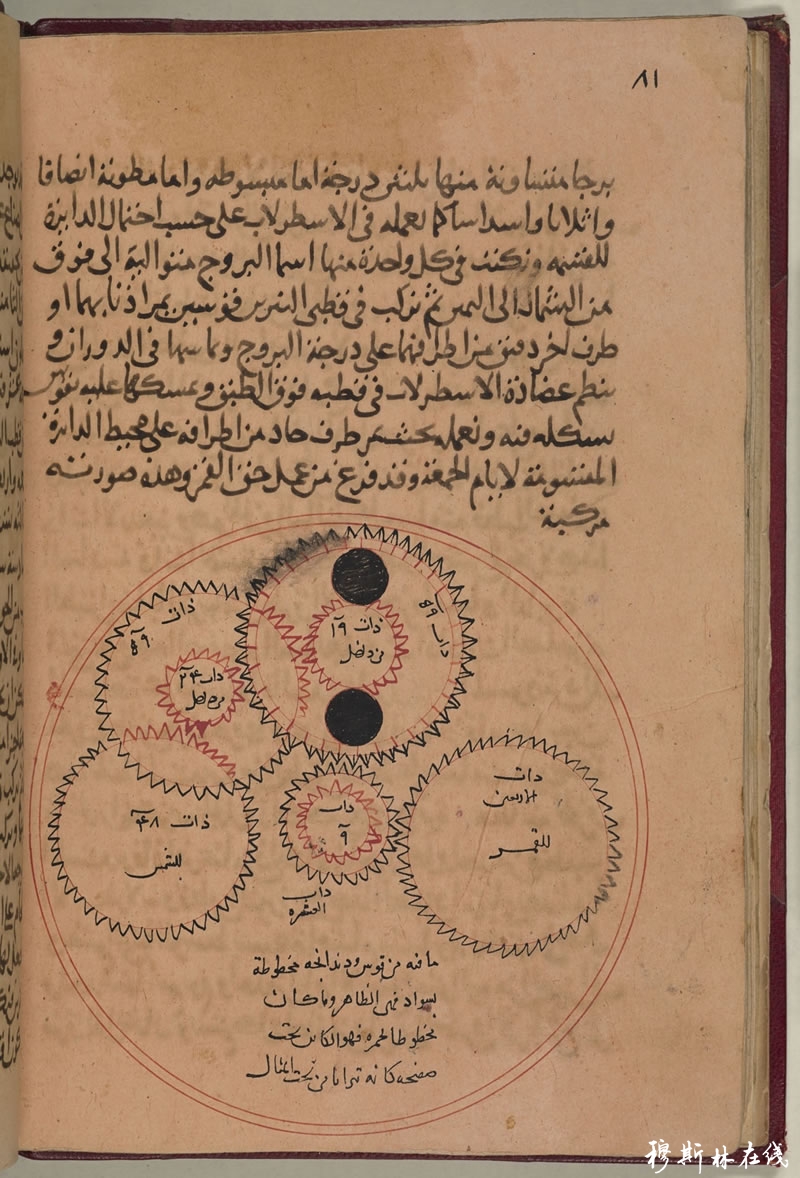 ٨١
برجا متساوية منها درجة اما مبسوطه واما مطوية انصافا
واثلاثا واسداسا كما نعمله في الاسطرلاب على حسب احتمال الدايرة
للقسمه ونكتب في كل واحدة منها اسما البروج متوالية الى فوق
من الشمال الى اليمين ثم نركب في قطبي الترسين يمر اذنابهما او
طرف اخر دقيق من اطرافهما على درجة البروج وتماسها في الدوران و
ننظم عضادة الاسطرلاب في قطبه فوق الطبق ونمسكها عليه
فيه ونعمله بحيث يمر طرف حاد من اطرافه على محيط الدايرة
المقسومة لايام الجمعة وقد فرغ من عمل حق القمر وهذه صورته
مركبة
ذات ٥٩
ذات ١٩
من داخل
ذات ٥٩
ذات ٢٤
من داخل
ذات ٤٨
للشمس
ذات
٩
ذات
العشره
ذات
الاربعين
للقمر
ما فيه من قوس ودندانجه مخطوطة
بسواد فهي الظاهر وما كان
مخطوطا بالحمره فهو الكاين تحت
صفحه كانه من تحت
穆斯林在线